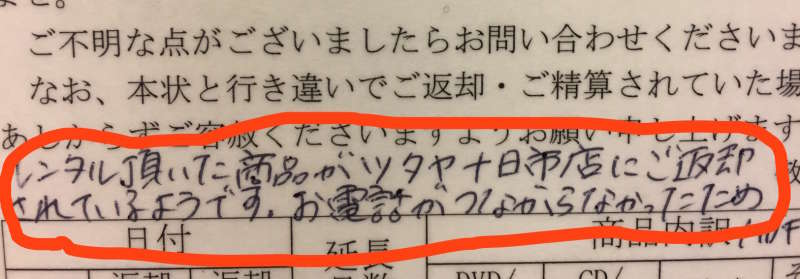 ご不明な点がございましたらお問い合わせくださいま
なお、本状と行き違いでご返却・ご精算されていた場
あしからずご容赦くださいますようお願い申し上げます
レンタル頂いた商品がツタヤ十日市店にご返却
されているようです。お電話がつながらなかったため
日付
延長
商品内訳
返却
返却
DVD/
CD/